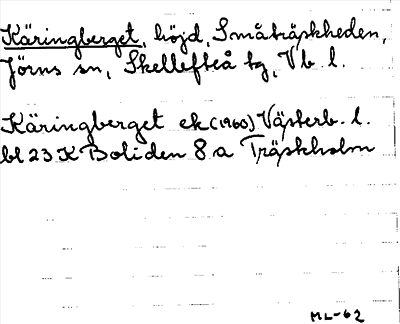 Käringberget, höjd, Småträskheden,
Jörns sn, Skellefteå tg, Vb. l.
Käringberget ek (1960) Västerb. l.
bl 23 K Boliden 8 a Träskholm
ML-62